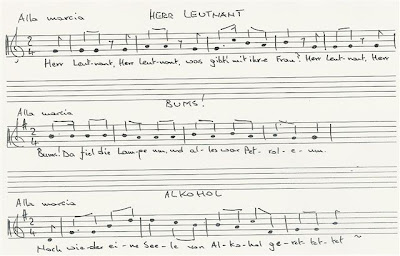 Alla marcia HERR LEUTNANT
Herr Leut-nant, Herr Leut-nant, was gibt's mit ihrer Frau? Herr Leut-nant, Herr
Alla marcia BUMS!
Bums! Da fiel die Lam-pe um, und al-les war Pet-rol-e-um.
Alla marcia ALKOHOL
Noch wie-der ei-ne See-le von Al-ko-hol ge-ret-tet-tet